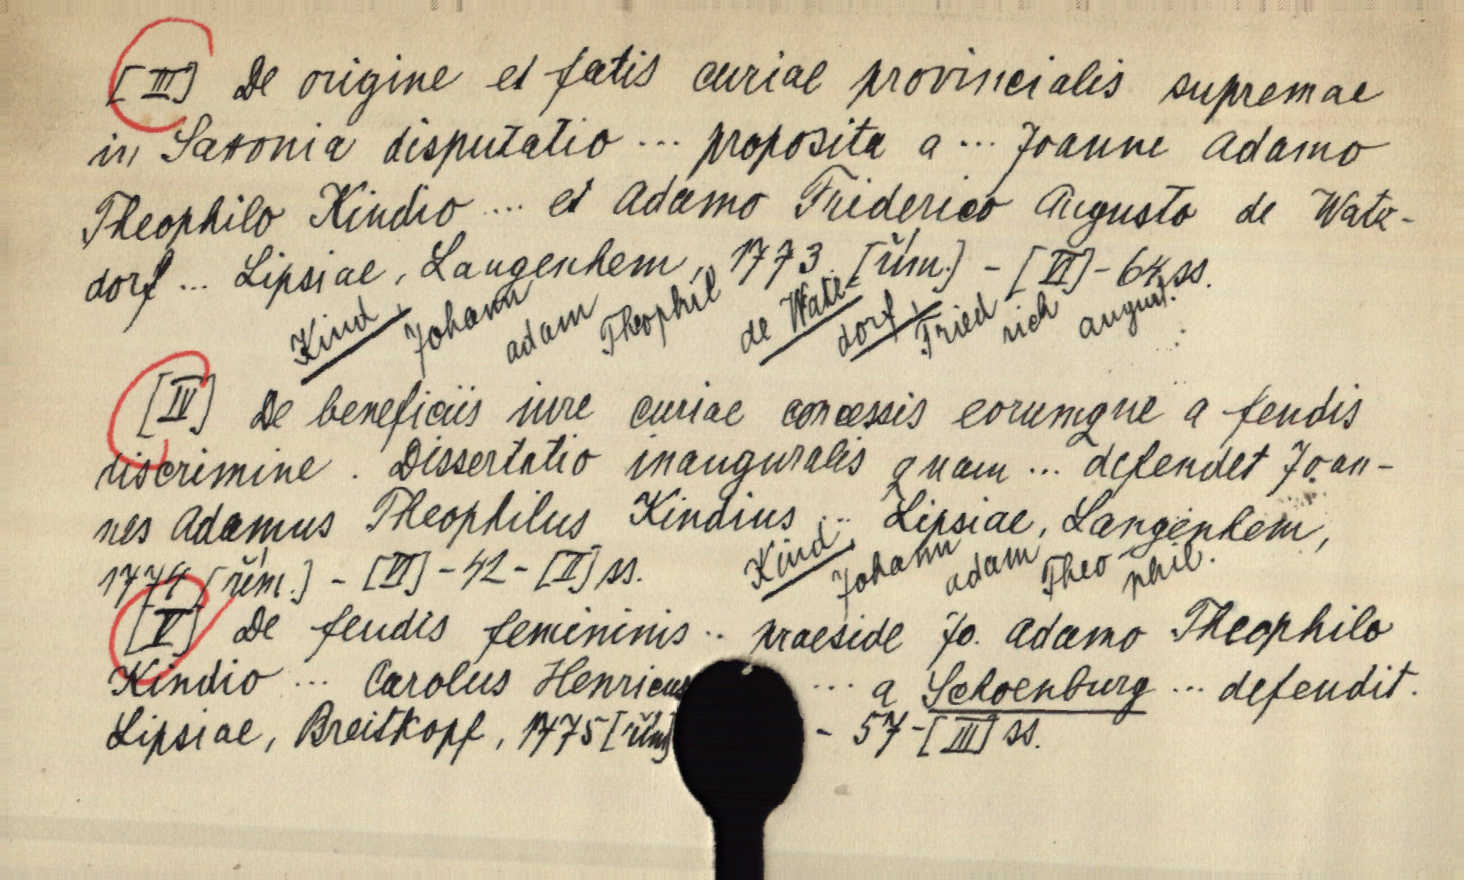 [III] De origine et fatis curiae provincialis supremae
in Saxonia disputatio ... proposita a ... Joanne Adamo
Theophilo Kindio ... et Adamo Friderico Augusto de Watz-
dorf ... Lipsiae, Langenhem, 1773. [řím.] - [VI] - 64 ss.
Kind, Johann Adam Theophil de Watz- dorf, Fried rich August.
[IV] De beneficiis iure curiae concessis eorumque a feudis
discrimine. Dissertatio inauguralis quam ... defendet Joan-
nes Adamus Theophilus Kindius ... Lipsiae, Langenhem,
1774 [řím.] - [VI] - 42 - [II] ss.
Kind, Johann Adam Theo- phil.
[V] De feudis femininis .. praeside Jo. Adamo Theophilo
Kindio ... Carolus Henricus ... a Schoenburg ... defendit.
Lipsiae, Breitkopf, 1775 [řím] - 57 - [III] ss.